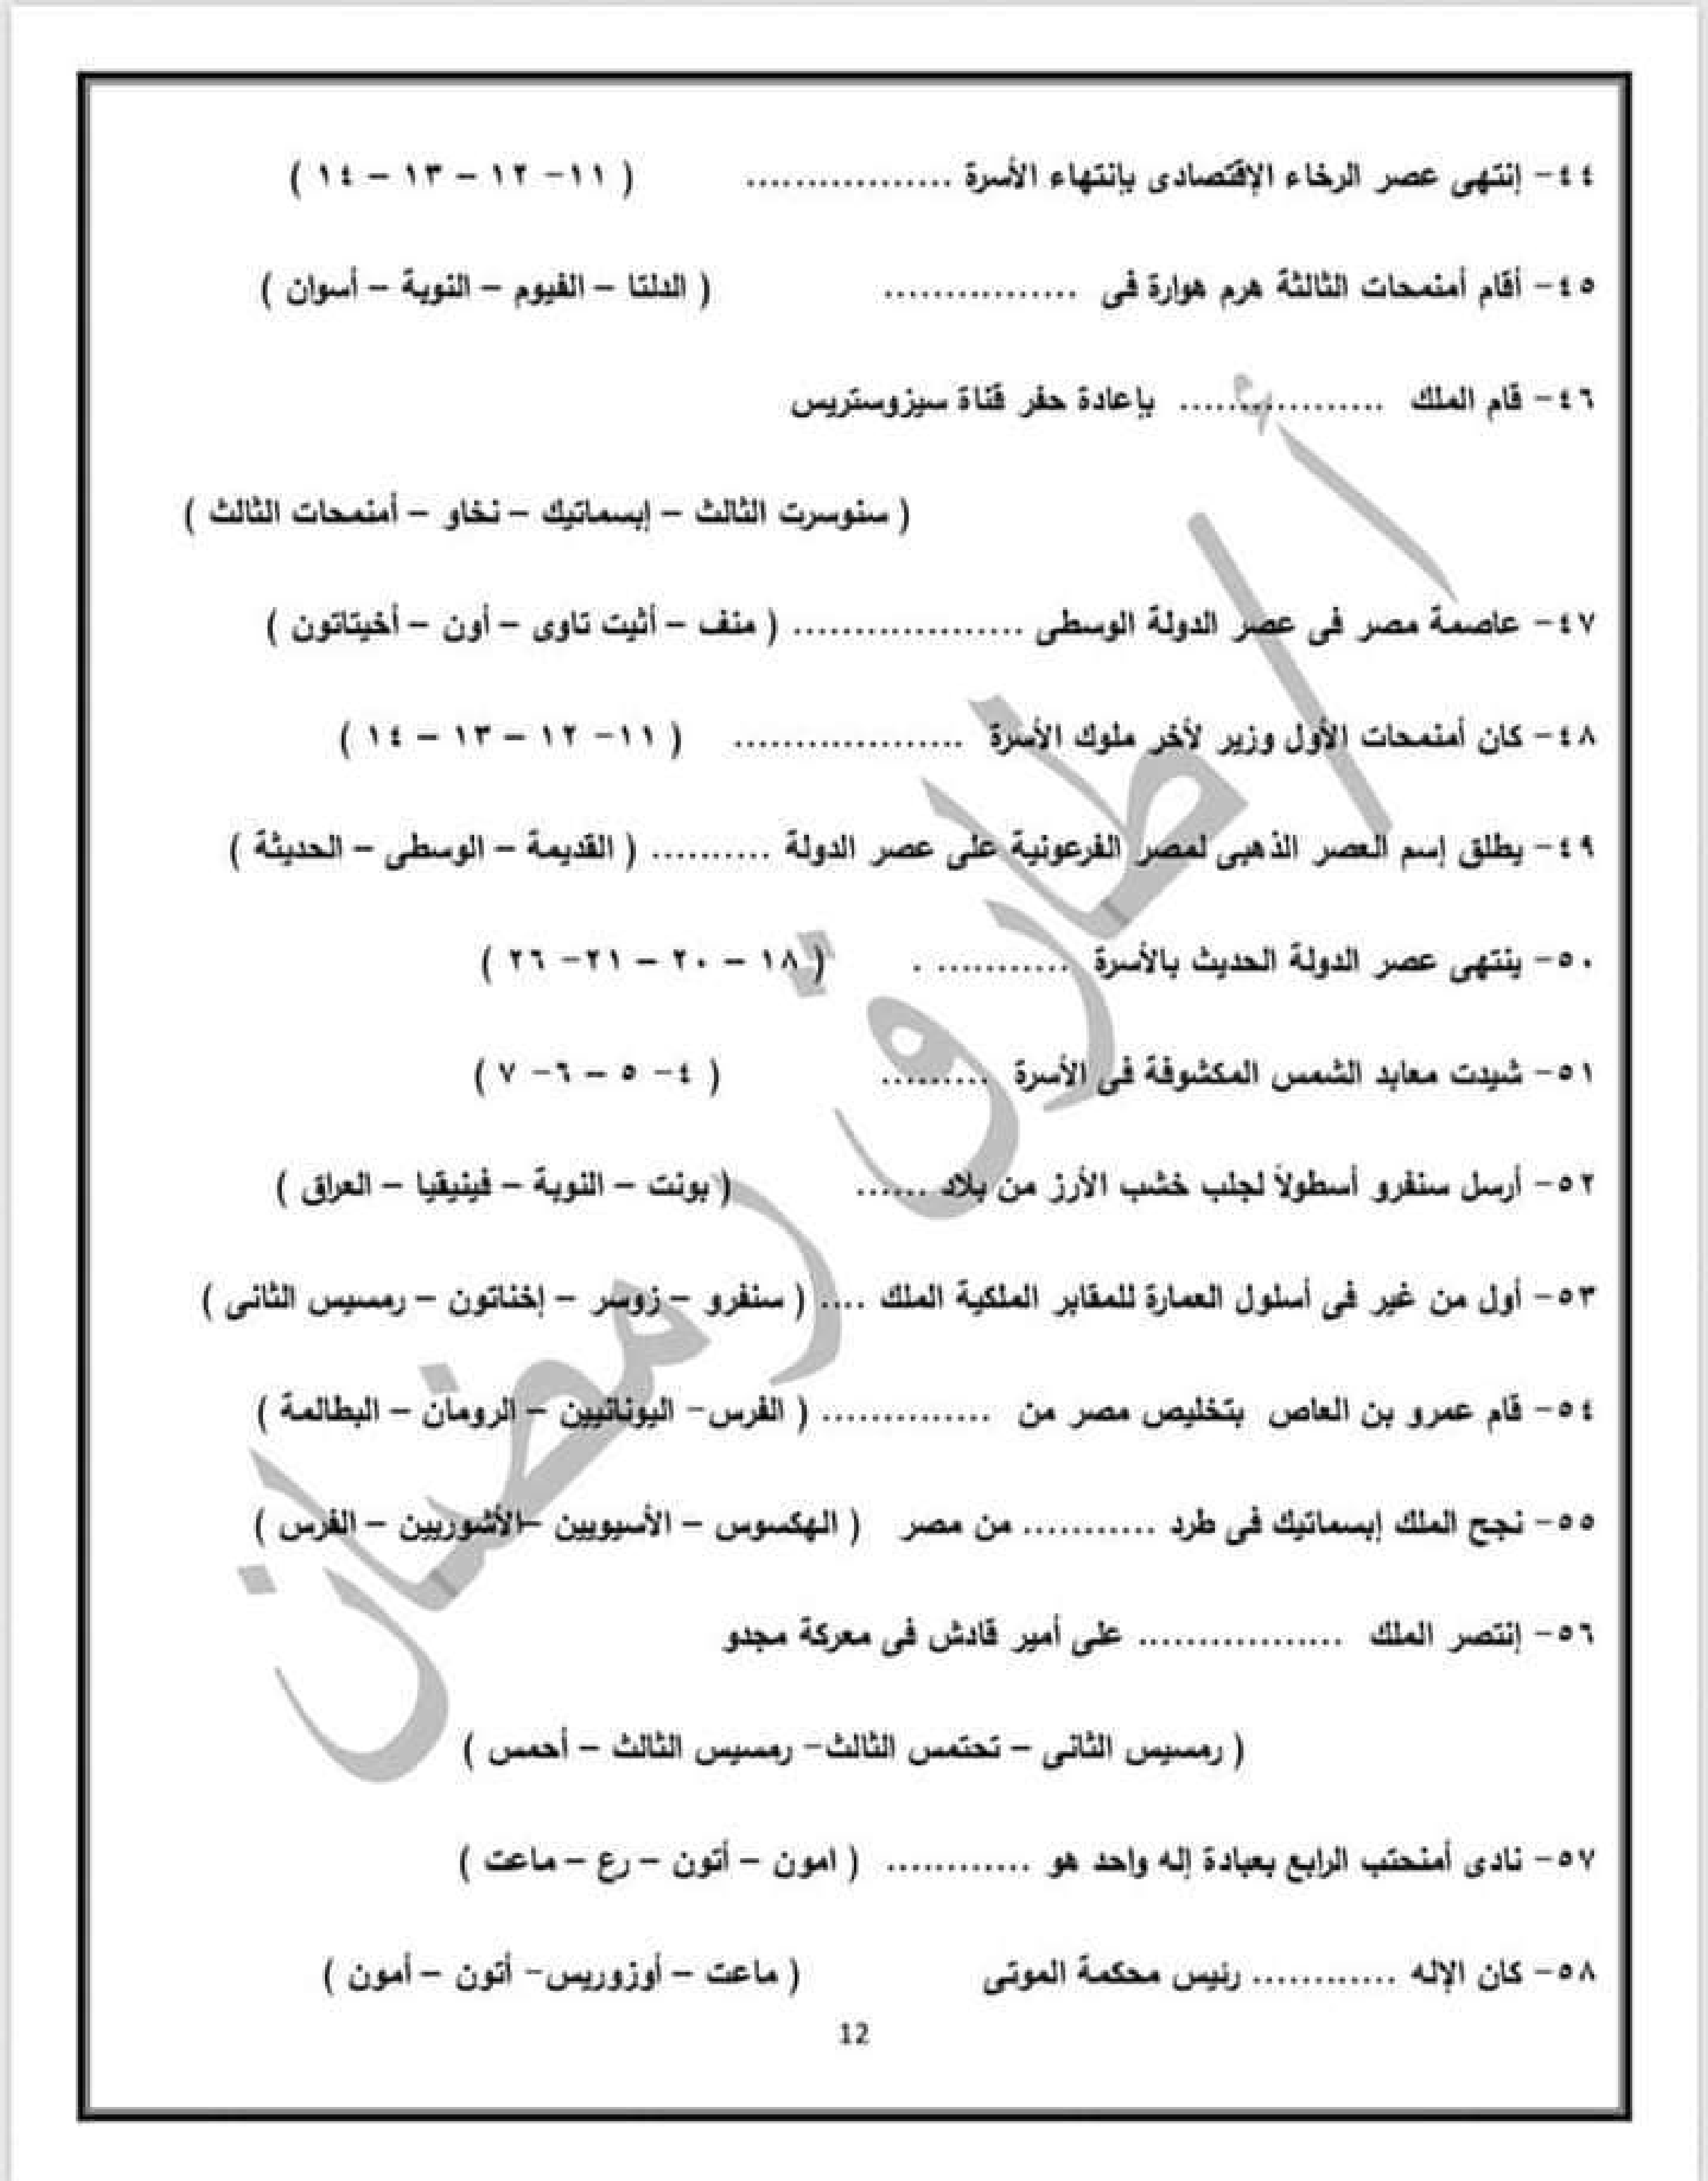 ٤٤- إنتهى عصر الرخاء الإقتصادى بإنتهاء الأسرة ................. ( ١١- ١٢ – ١٣ – ١٤ )
٤٥- أقام أمنمحات الثالثة هرم هوارة فى ................ ( الدلتا – الفيوم – النوبة – أسوان )
٤٦- قام الملك ................. بإعادة حفر قناة سيزوستريس
( سنوسرت الثالث – إبسماتيك – نخاو – أمنمحات الثالث )
٤٧- عاصمة مصر فى عصر الدولة الوسطى ................... ( منف – أثيت تاوى – أون – أخيتاتون )
٤٨- كان أمنمحات الأول وزير لأخر ملوك الأسرة ................... ( ١١- ١٢ – ١٣ – ١٤ )
٤٩- يطلق إسم العصر الذهبى لمصر الفرعونية على عصر الدولة .......... ( القديمة – الوسطى – الحديثة )
٥٠- ينتهى عصر الدولة الحديث بالأسرة ............ ( ١٨ – ٢٠ – ٢١- ٢٦ )
٥١- شيدت معابد الشمس المكشوفة فى الأسرة ......... ( ٤- ٥ – ٦- ٧ )
٥٢- أرسل سنفرو أسطولاً لجلب خشب الأرز من بلاد ...... ( بونت – النوبة – فينيقيا – العراق )
٥٣- أول من غير فى أسلول العمارة للمقابر الملكية الملك .... ( سنفرو – زوسر – إخناتون – رمسيس الثانى )
٥٤- قام عمرو بن العاص بتخليص مصر من .............. ( الفرس- اليونانيين – الرومان – البطالمة )
٥٥- نجح الملك إبسماتيك فى طرد ........... من مصر ( الهكسوس – الأسيويين –الأشوريين – الفرس )
٥٦- إنتصر الملك ................. على أمير قادش فى معركة مجدو
( رمسيس الثانى – تحتمس الثالث- رمسيس الثالث – أحمس )
٥٧- نادى أمنحتب الرابع بعبادة إله واحد هو ............ ( امون – أتون – رع – ماعت )
٥٨- كان الإله ............ رئيس محكمة الموتى ( ماعت – أوزوريس- أتون – أمون )
12
أ / طارق رمضان